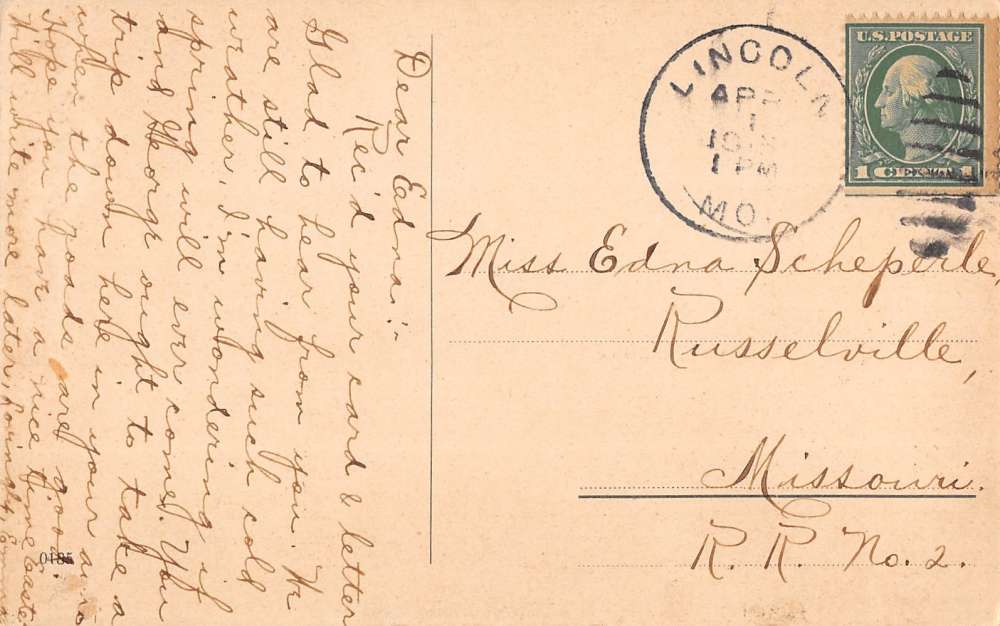 Dear Edna:-
Rec'd your card & letter
Glad to hear from you. We
are still having such cold
weather, I'm wondering if
spring will ever come. You
and George ought to take a
trip down here in your auto
when the roads are good.
Hope you have a nice time Easter
Will write more later, Lovingly, Emma
0185
LINCOLN
APR
1
1 PM
MO.
U.S. POSTAGE
1 CENT 1
Miss Edna Scheperle,
Russelville,
Missouri.
R. R. No. 2.